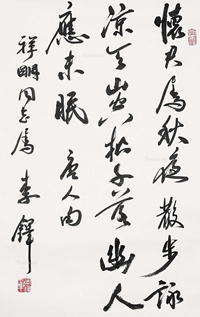 懷君屬秋夜散步詠
涼天山空松子落幽人
應未眠 唐人句
祥明同志屬 李鐸